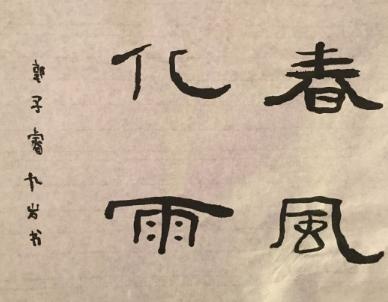 春風
化雨
郭子睿九岁书